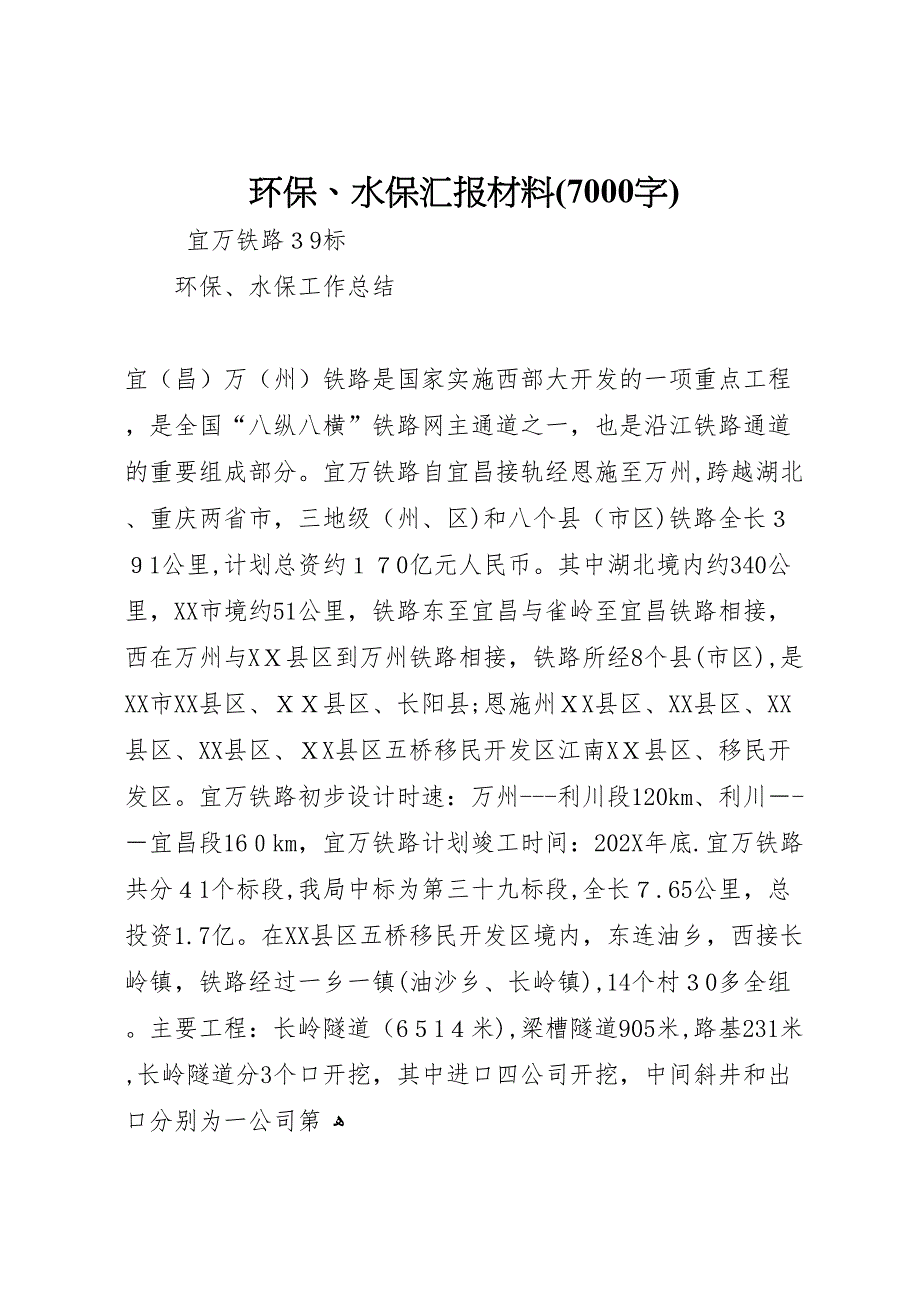 环保、水保汇报材料(7000字)
宜万铁路３9标
环保、水保工作总结
宜（昌）万（州）铁路是国家实施西部大开发的一项重点工程
，是全国“八纵八横”铁路网主通道之一，也是沿江铁路通道
的重要组成部分。宜万铁路自宜昌接轨经恩施至万州,跨越湖北
、重庆两省市，三地级（州、区)和八个县（市区)铁路全长３
９1公里,计划总资约１７0亿元人民币。其中湖北境内约340公
里，XX市境约51公里，铁路东至宜昌与雀岭至宜昌铁路相接，
西在万州与XＸ县区到万州铁路相接，铁路所经8个县(市区),是
XX市XX县区、ＸＸ县区、长阳县;恩施州ＸX县区、XX县区、XX
县区、XX县区、ＸX县区五桥移民开发区江南XＸ县区、移民开
发区。宜万铁路初步设计时速：万州---利川段120km、利川—-
－宜昌段16０km，宜万铁路计划竣工时间：202X年底.宜万铁路
共分４1个标段,我局中标为第三十九标段,全长７.65公里，总
投资1.7亿。在XX县区五桥移民开发区境内，东连油乡，西接长
岭镇，铁路经过一乡一镇(油沙乡、长岭镇),14个村３0多全组
。主要工程：长岭隧道（6５1４米),梁槽隧道905米,路基231米
,长岭隧道分3个口开挖，其中进口四公司开挖，中间斜井和出
口分别为一公司第ﻫ